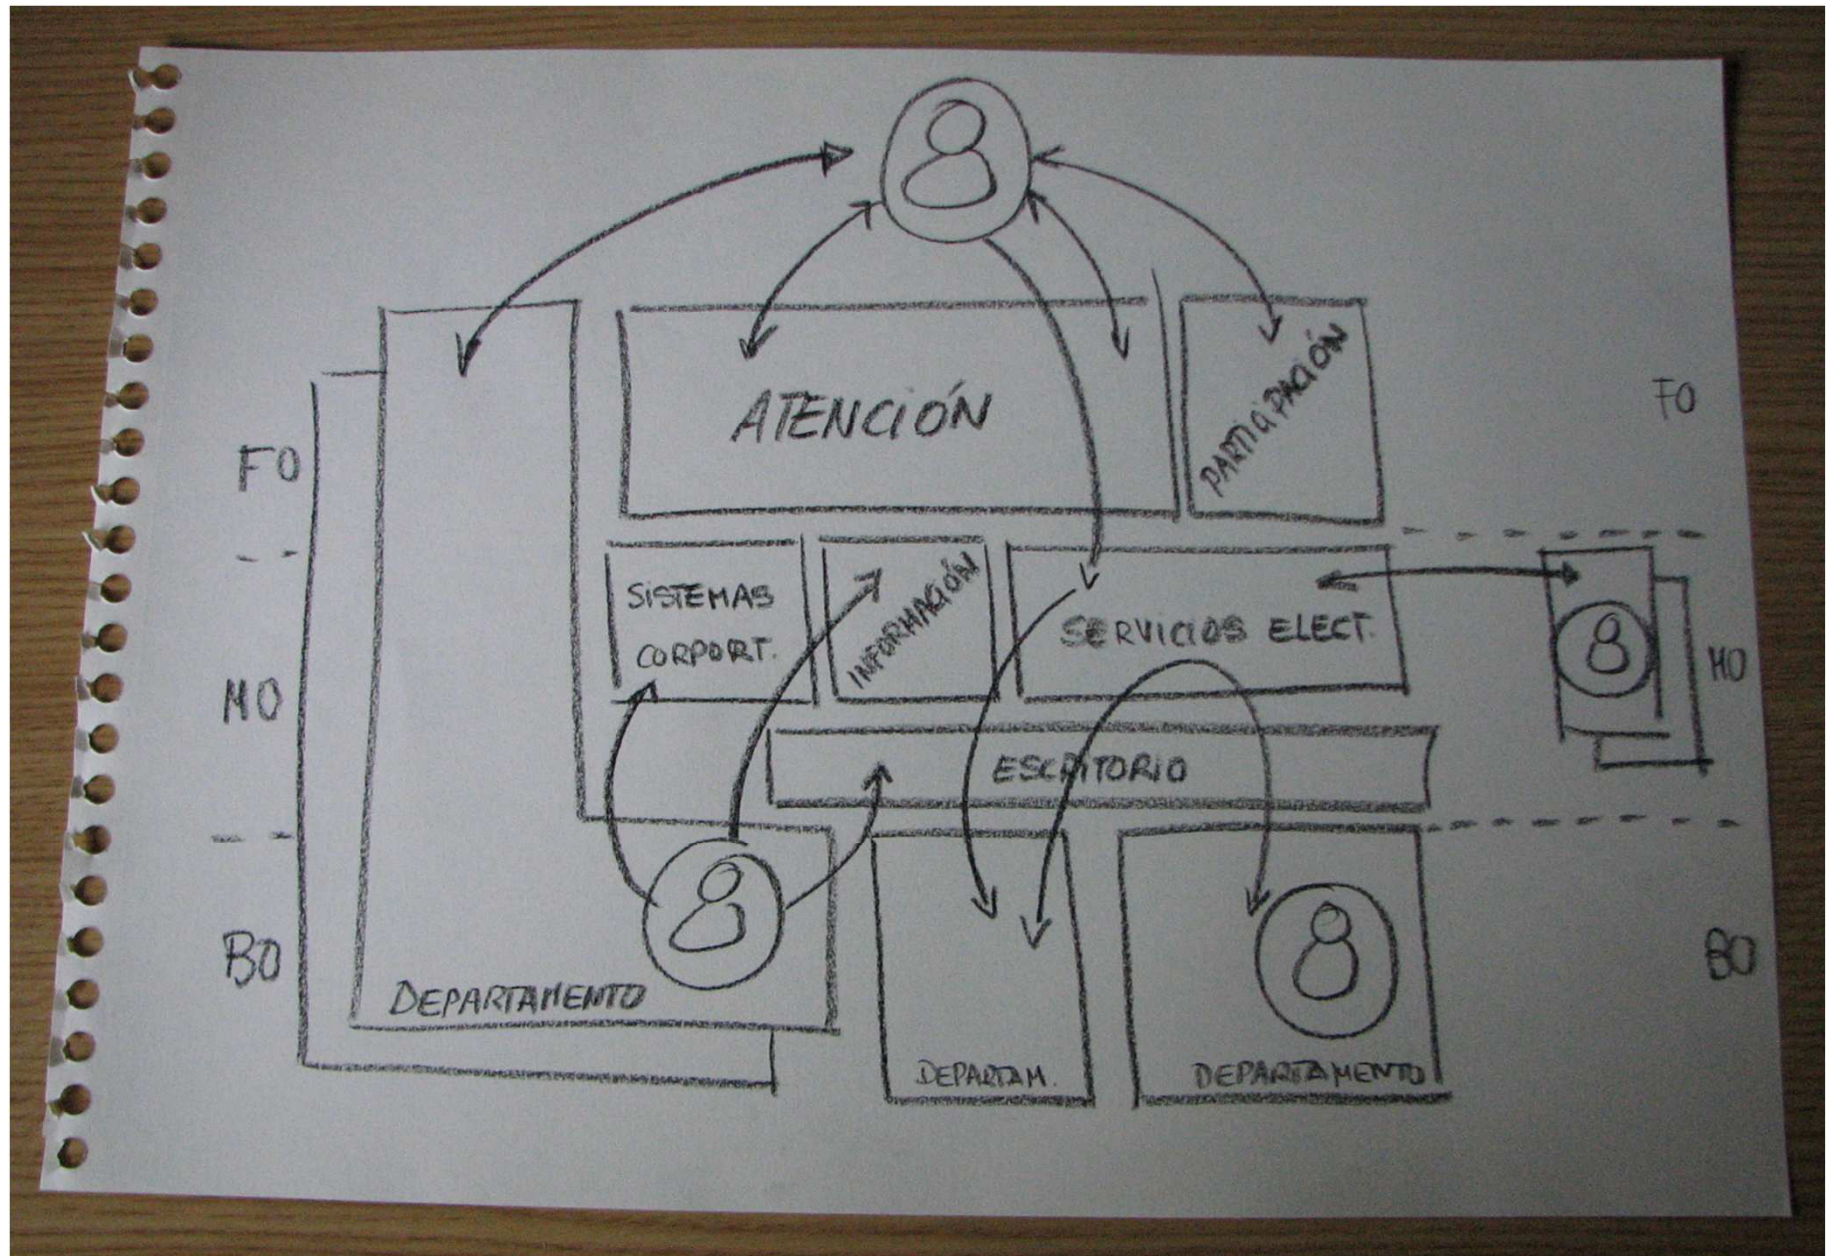 FO
FO
ATENCIÓN
PARTICIPACIÓN
SISTEMAS
CORPORT.
INFORMACIÓN
SERVICIOS ELECT.
MO
MO
ESCRITORIO
BO
BO
DEPARTAMENTO
DEPARTAM.
DEPARTAMENTO